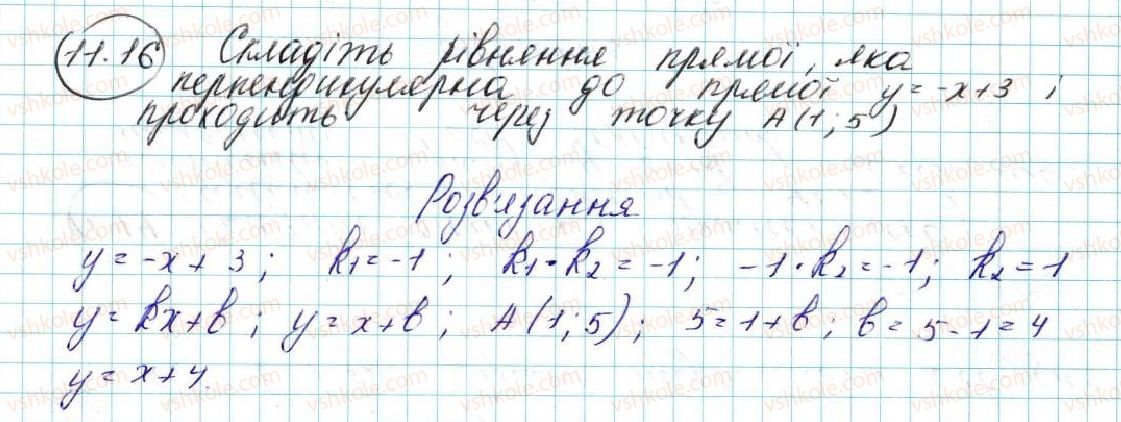 11.16 Складіть рівняння прямої, яка
перпендикулярна до прямої y = -x + 3 і
проходить через точку A(1; 5)
Розв'язання
y = -x + 3; k₁ = -1; k₁ · k₂ = -1; -1 · k₂ = -1; k₂ = 1
y = kx + b; y = x + b; A(1; 5); 5 = 1 + b; b = 5 - 1 = 4
y = x + 4.